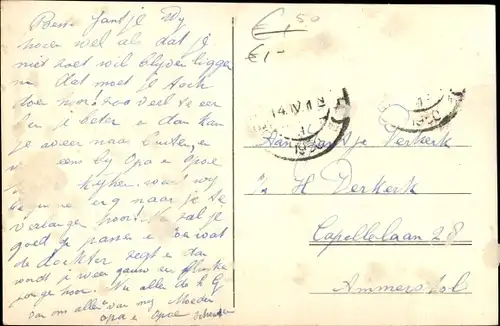 Beste Jantje Wy
horen wel als dat je
niet zoet wil blyven liggen
nu dat moet je toch
doen hoor zoo veel te eer
ben je beter en dan kan
je weer naar buiten, en
eens by Opa en Opoe
kyken want wy
erg naar je te
verlangen hoor. Nu zal je
goed op passen en wat
de dockter zegt en dan
wordt je weer gauw een flinke
jonge hoor. Nu alle de h G
van ons allen van my Moeder
opa en Opoe
€1,50
€1,-
14.IV.
1950
1950
Aan Jantje Verkerk
p/a H Verkerk
Capellelaan 28
Ammerstol